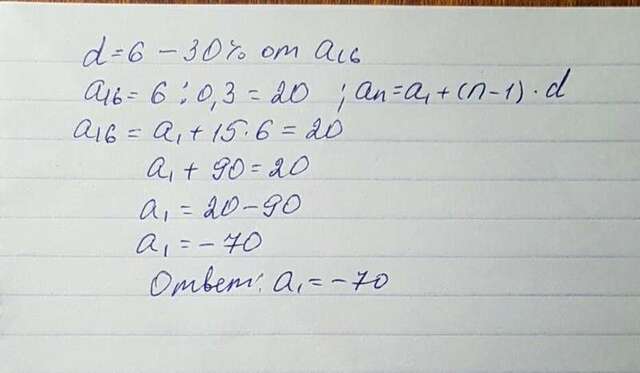 d=6 – 30% от a₁₆
a₁₆ = 6 : 0,3 = 20 ; an = a₁ + (n-1) · d
a₁₆ = a₁ + 15·6 = 20
a₁ + 90 = 20
a₁ = 20-90
a₁ = -70
Ответ: a₁ = -70